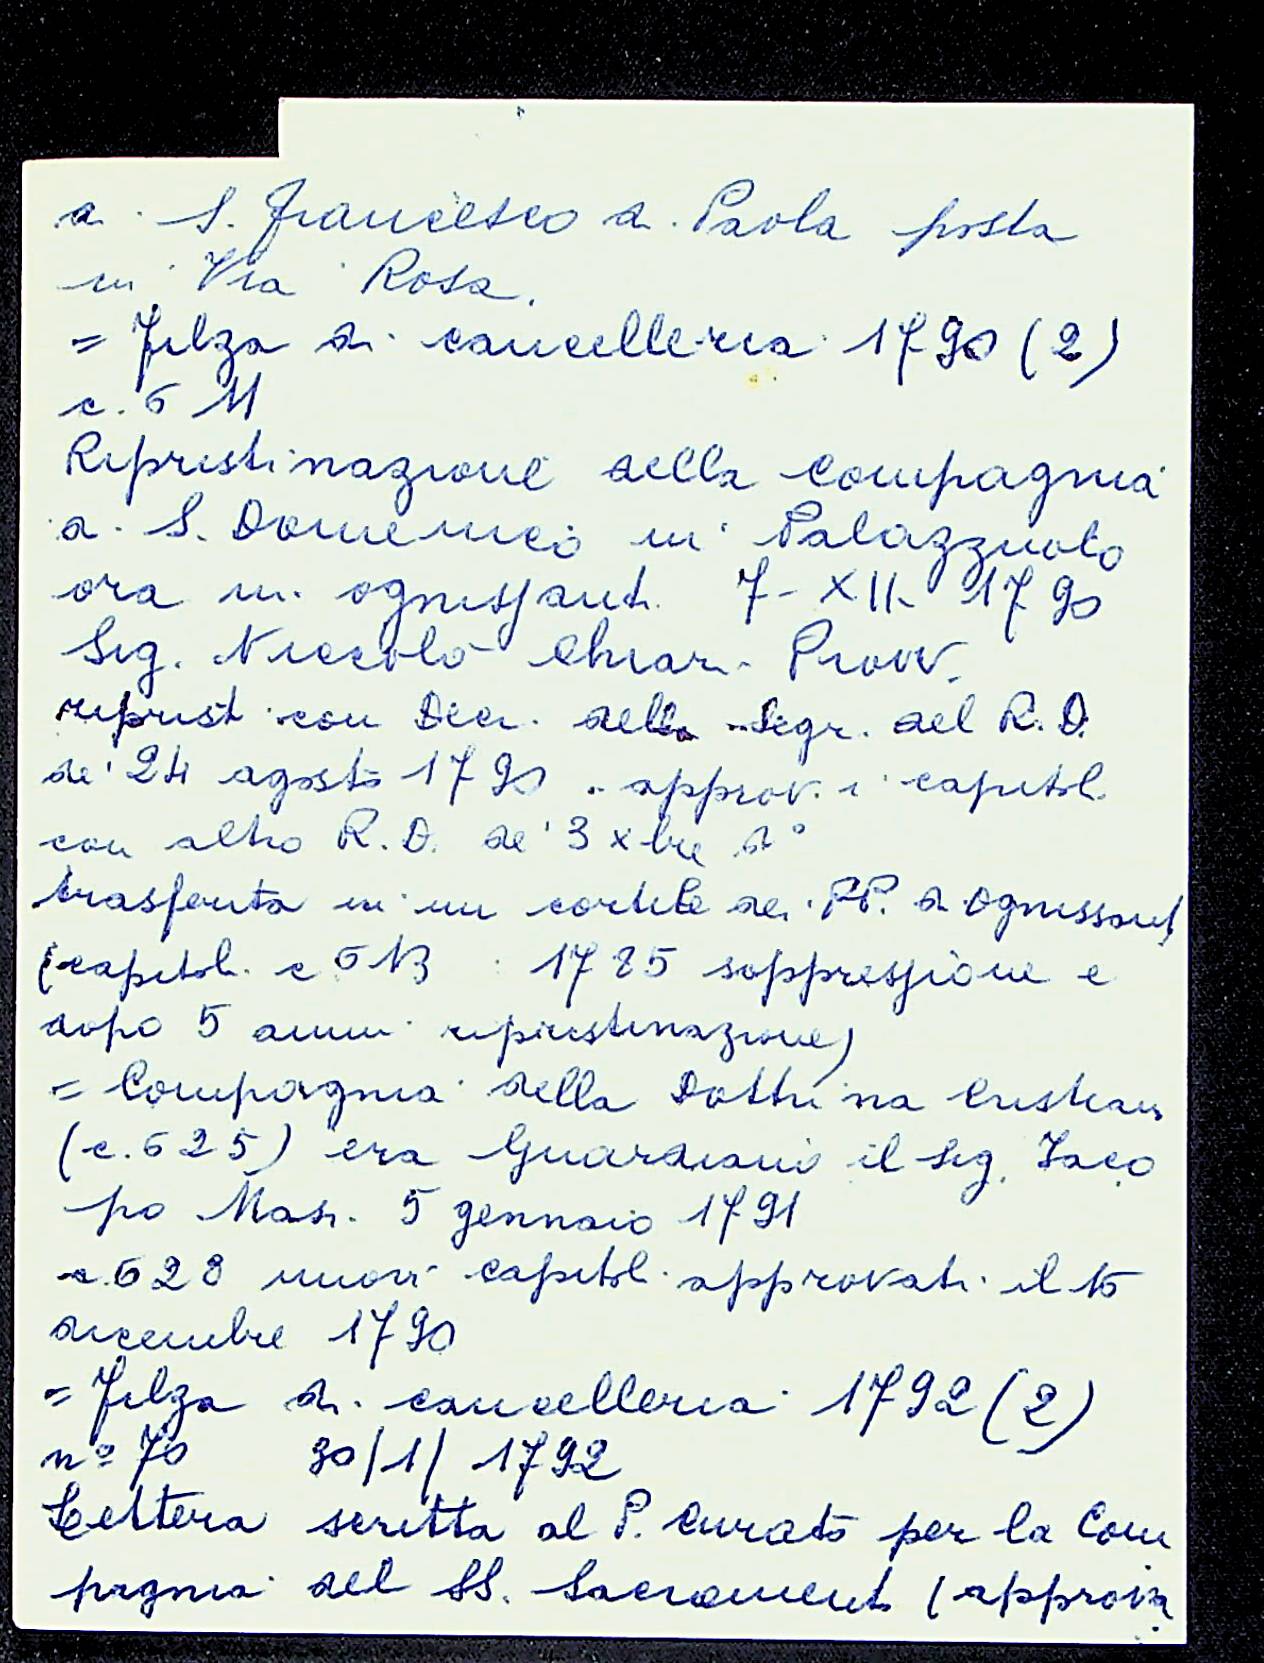 di S. Francesco di Paola posta
in Via Rosa.
= Filza di cancelleria 1790 (2)
c. 611
Ripristinazione della Compagnia
di S. Domenico in Palazzuolo
ora in Ognissanti 7-XII-1790
Sig. Niccolò Chiari Provv.
riprist. con Decr. della Segr. del R. D.
de' 24 agosto 1790 - approv. i capitoli
con altro R. D. de' 3 xbre d°
trasferita in un cortile dei PP. di Ognissanti
(capitoli c 613 : 1785 soppressione e
dopo 5 anni ripristinazione)
= Compagnia della Dottrina Cristiana
(c. 625) era Guardiano il Sig. Jaco
po Masi. 5 gennaio 1791
c. 628 nuovi capitoli approvati il 15
dicembre 1790
= Filza di cancelleria 1792 (2)
n° 70 30/1/1792
Lettera scritta al P. Curato per la Com
pagnia del SS. Sacramento (approva